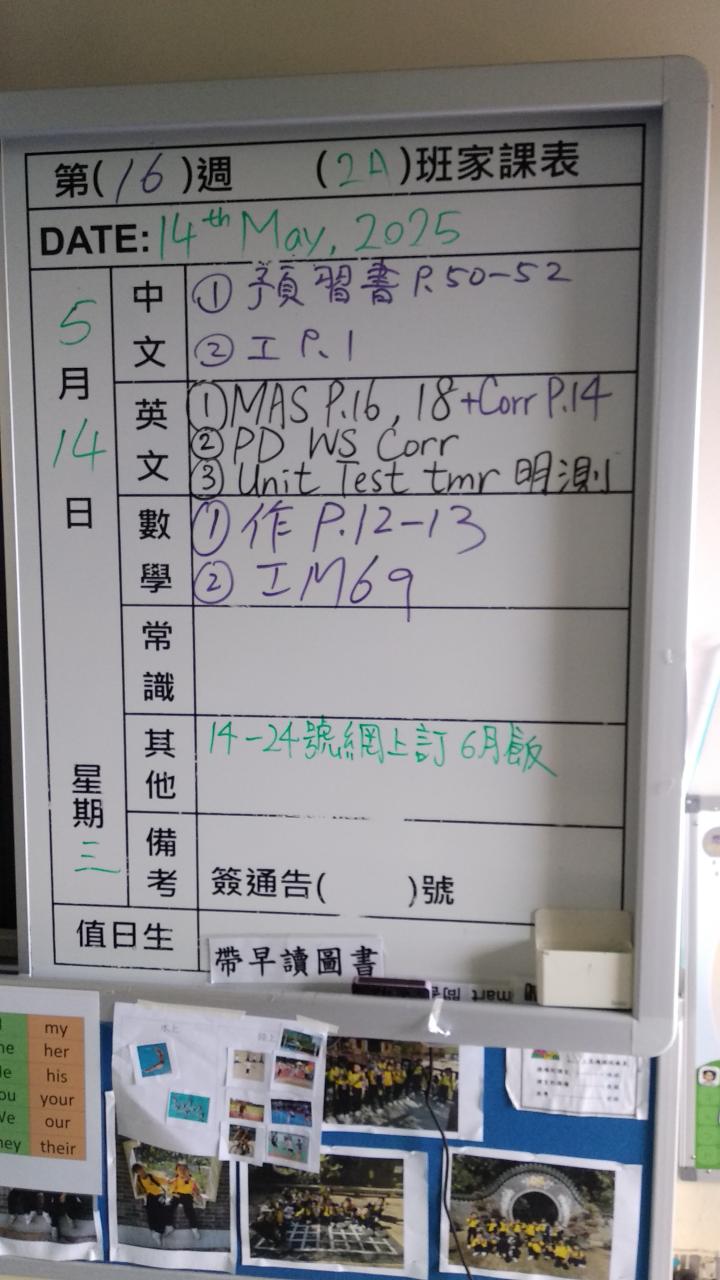 第(16)週 (2A)班家課表
DATE: 14th May, 2025
5月14日
星期三
中文
① 預習書 P.50-52
② 工 P.1
英文
① MAS P.16, 18 +Corr P.14
② PD WS Corr
③ Unit Test tmr 明測
數學
① 作 P.12-13
② 工 M69
常識
其他
14-24號網上訂6月飯
備考
簽通告( )號
值日生
帶早讀圖書
mart
my
her
his
your
our
their
水上
陸上